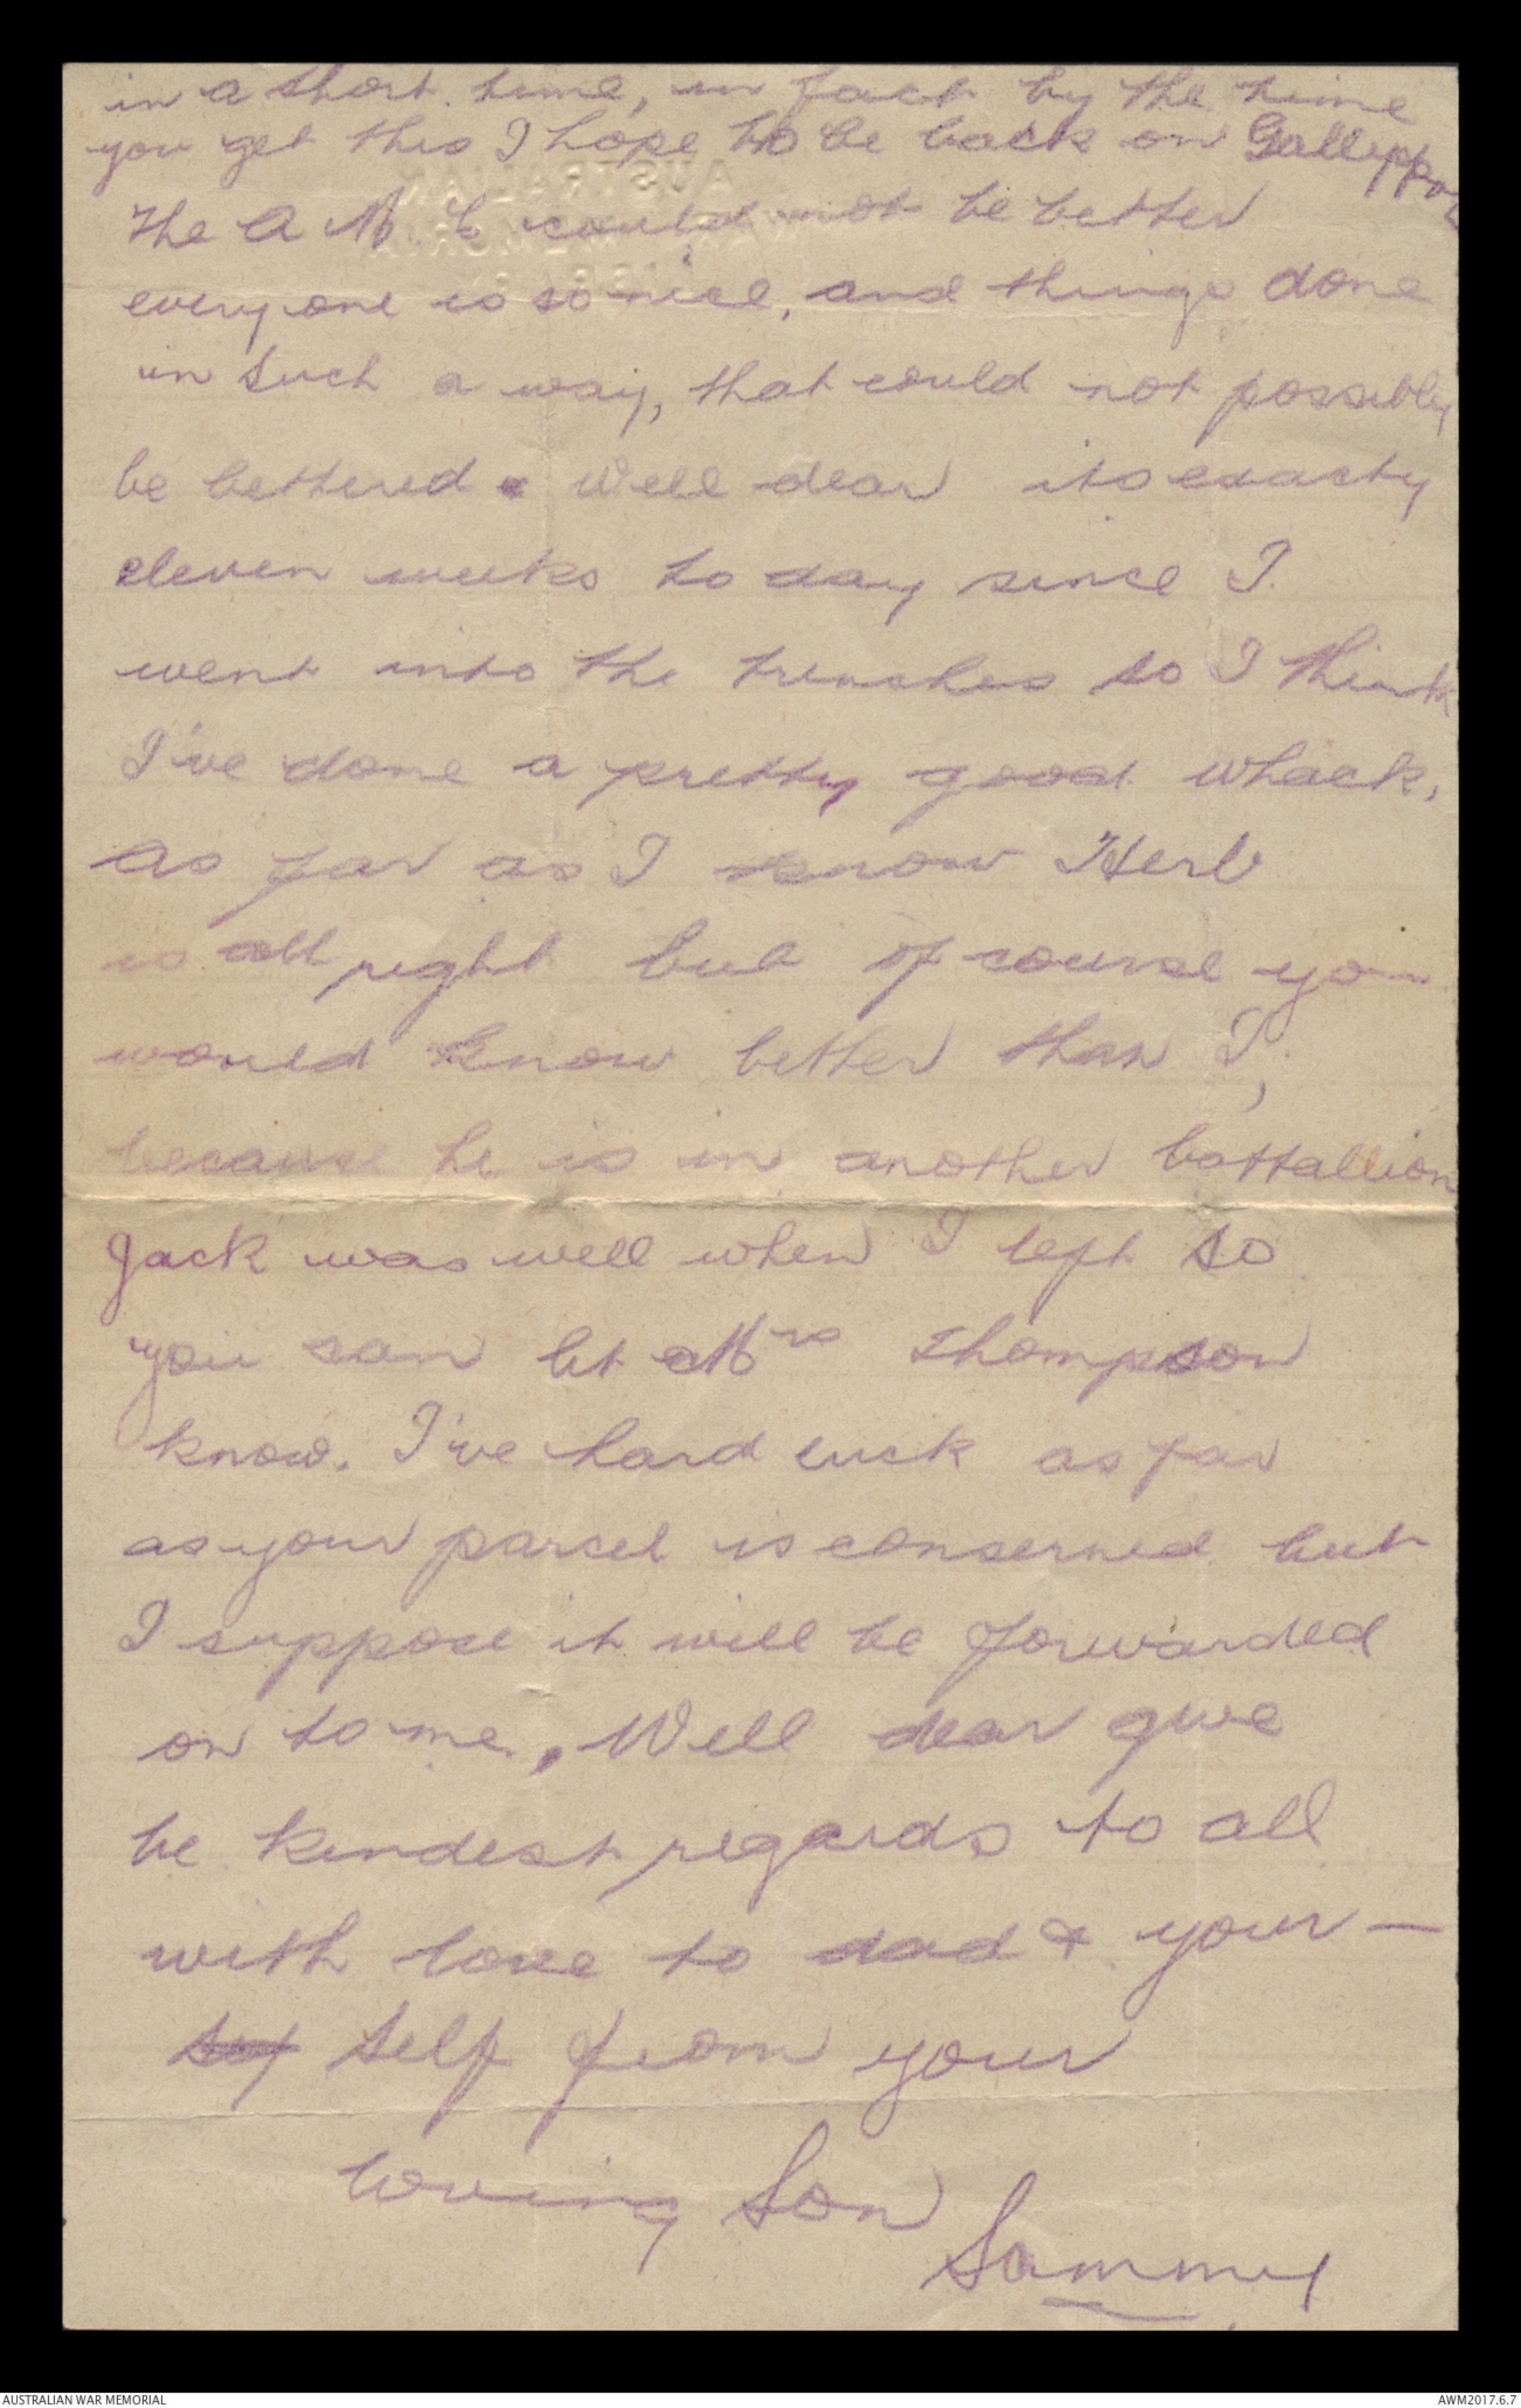 in a short time, in fact by the time
you get this I hope to be back on
The A M C could not be better
everyone is so nice, and things done
in such a way, that could not possibly
be bettered. Well dear its exacty
eleven weeks to day since I
went into the trenches so I think
I've done a pretty good whack,
as far as I know Herb
is all right but of course you
would know better than I,
because he is in another battallion
Jack was well when I left so
you can let Mrs Thompson
know. I've hard luck as far
as your parsel is conserned but
I suppose it will be forwarded
on to me. Well dear give
be kindest regards to all
with love to dad & your-
self from your
loving Son
Sammy
AUSTRALIAN WAR MEMORIAL
AWM2017.6.7